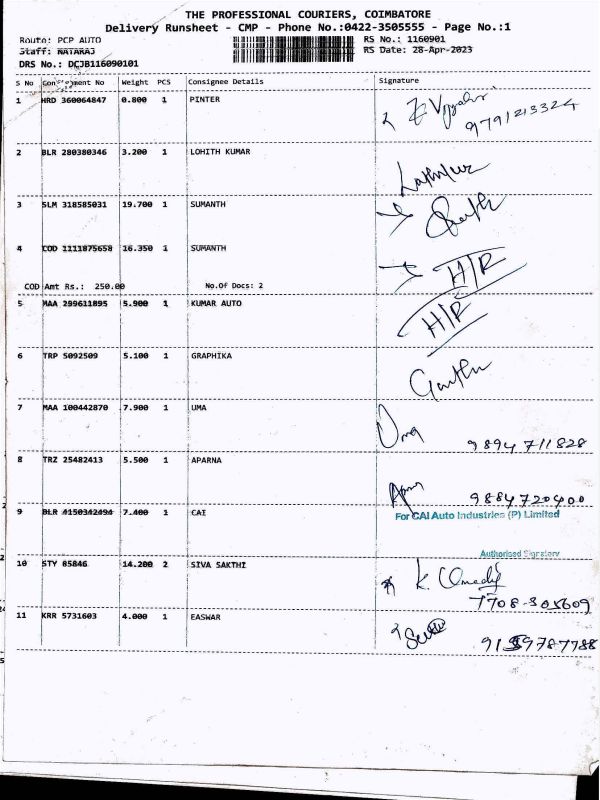 THE PROFESSIONAL COURIERS, COIMBATORE
Delivery Runsheet - CMP - Phone No.:0422-3505555 - Page No.:1
Route: PCP AUTO
RS No.: 1160901
Staff: NATARAJ
RS Date: 28-Apr-2023
DRS No.: DCJB116090101
S No Consignment No Weight PCS Consignee Details Signature
1 HRD 360064847 0.800 1 PINTER
9791213324
2 BLR 280380346 3.200 1 LOHITH KUMAR
3 SLM 318585031 19.700 1 SUMANTH
4 COD 1111875658 16.350 1 SUMANTH H/R
COD Amt Rs.: 250.00 No.Of Docs: 2
5 MAA 299611895 5.900 1 KUMAR AUTO H/R
6 TRP 5092509 5.100 1 GRAPHIKA
7 MAA 100442870 7.900 1 UMA Uma
9894711828
8 TRZ 25482413 5.500 1 APARNA
9884720400
9 BLR 4150342494 7.400 1 CAI For CAI Auto Industries (P) Limited
Authorised Signatory
10 STY 85846 14.200 2 SIVA SAKTHI
7708-305609
11 KRR 5731603 4.000 1 EASWAR